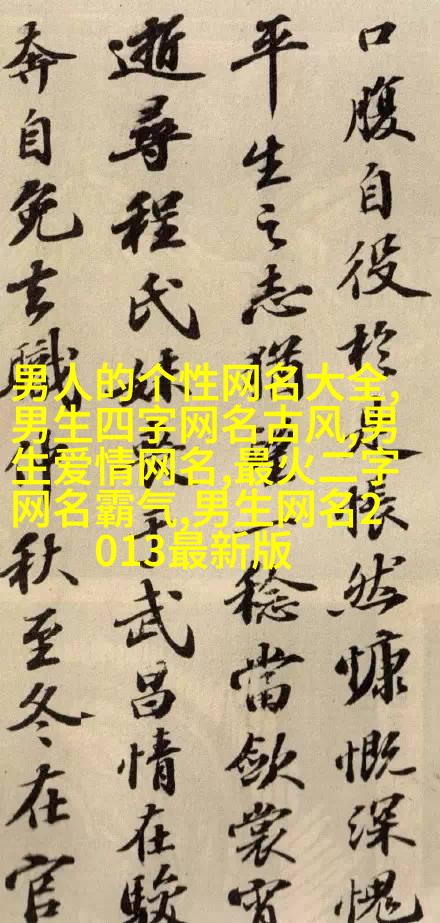 口腹自役於是悵然慷慨深愧
平生之志猶望一稔當斂裳宵
逝尋程氏妹喪于武昌情在駿
奔自免去職仲秋至冬在官
男人的个性网名大全,
男生四字网名古风,男
生爱情网名,最火二字
网名霸气,男生网名2
013最新版